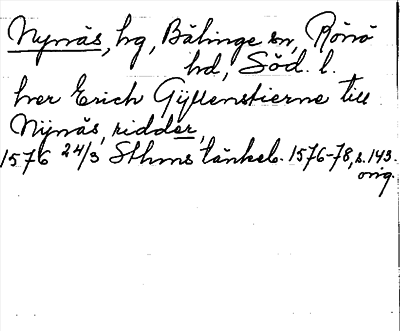 Nynäs, hg, Bälinge sn, Rönö
hd, Söd. l.
her Erich Gÿllenstierne till
Nÿnäs, ridder,
1576 24/3 Sthms tänkeb. 1576-78, s. 143.
orig.